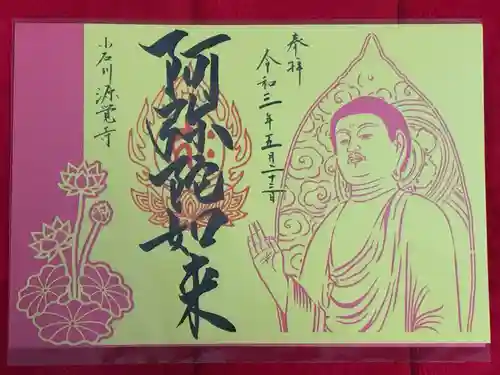 奉拝
令和三年五月二十三日
阿弥陀如来
小石川 源覚寺